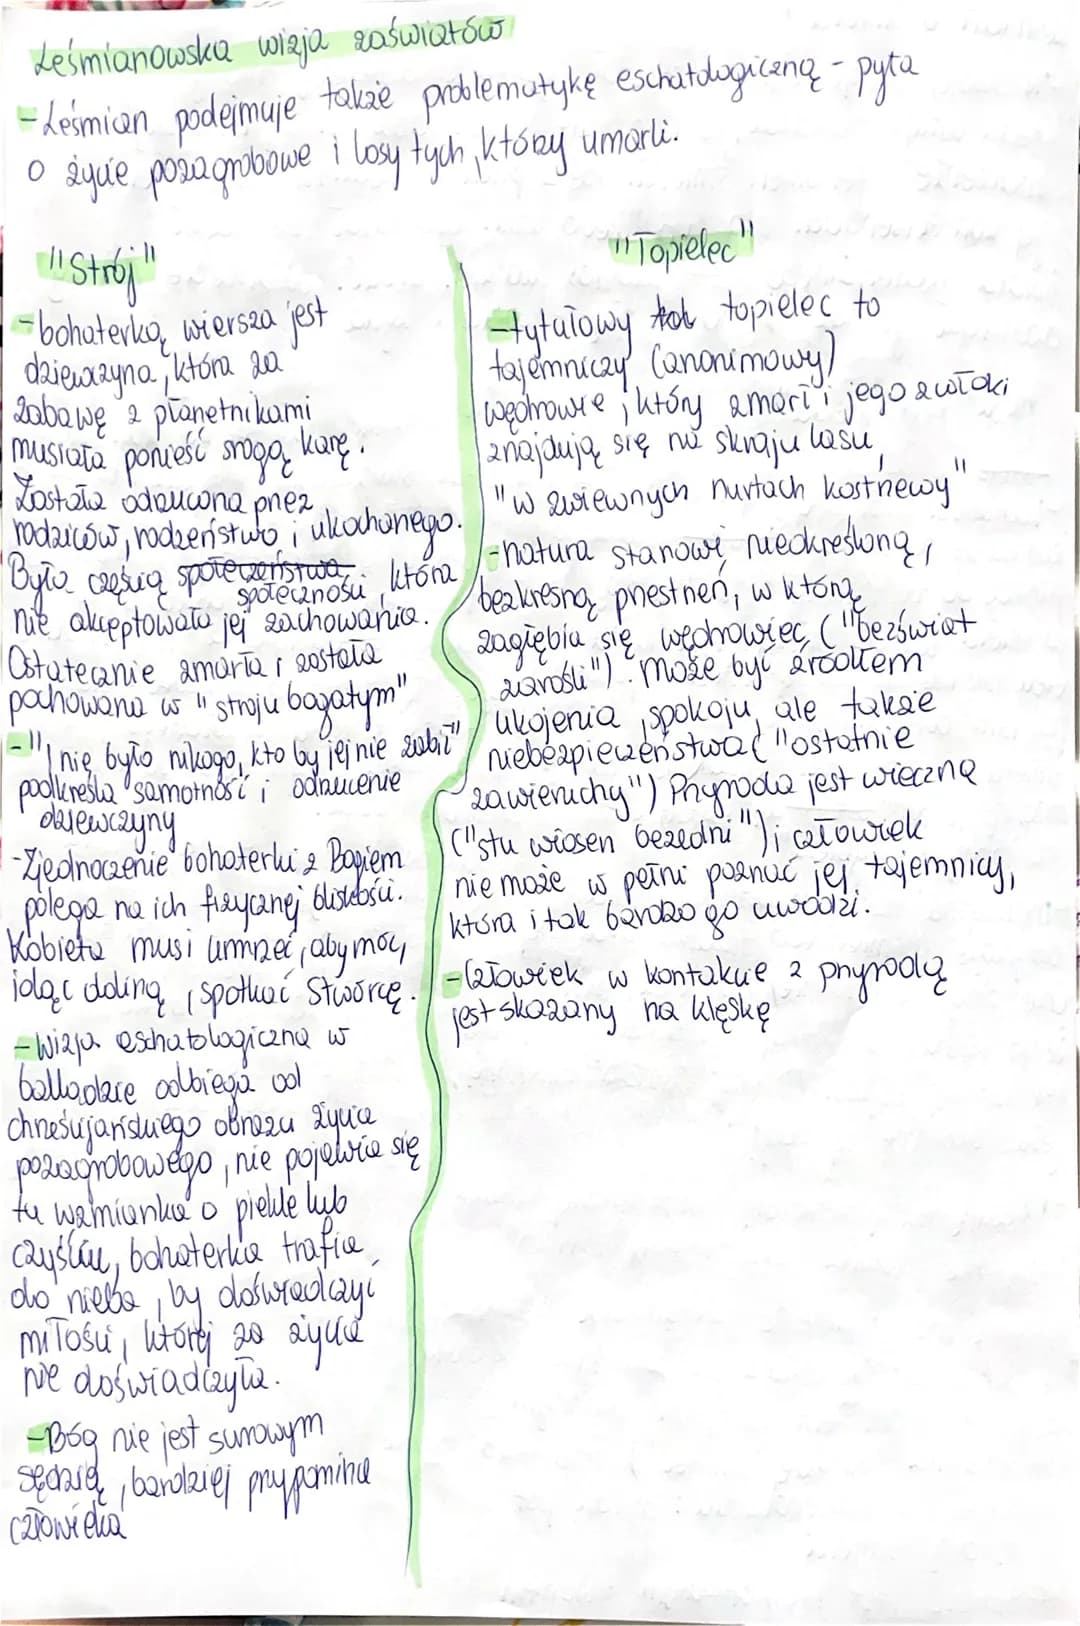 Leśmianowska wizja zaświatów
- Leśmian podejmuje także problematykę eschatologiczną - pyta
o życie pozagrobowe i losy tych, którzy umarli.
"Strój"
- bohaterką wiersza jest
dziewczyna, która za
zabawę z płanetnikami
musiała ponieść srogą karę.
Została odrzucona przez
rodziców, rodzeństwo i ukochanego.
Była częścią społeczeństwa
społeczności, która
nie akceptowała jej zachowania.
Ostatecznie zmarła i została
pochowana w "stroju bogatym"
- "I nie było nikogo, kto by jej nie zabił"
podkreśla samotność i odrzucenie
dziewczyny
- Zjednoczenie bohaterki z Bogiem
polega na ich fizycznej bliskości.
Kobieta musi umrzeć, aby móc,
idąc doliną, spotkać Stwórcę.
- Wizja eschatologiczna w
balladzie odbiega od
chrześcijańskiego obrazu życia
pozagrobowego, nie pojawia się
tu wzmianka o piekle lub
czyśćcu, bohaterka trafia
do nieba, by doświadczyć
miłości, której za życia
nie doświadczyła.
- Bóg nie jest surowym
sędzią, bardziej przypomina
człowieka
"Topielec"
- tytułowy topielec to
tajemniczy (anonimowy)
wędrowiec, który zmarł i jego zwłoki
znajdują się na skraju lasu,
"w zwiewnych nurtach kostrzewy"
- natura stanowi nieokreśloną,
bezkresną przestrzeń, w którą
zagłębia się wędrowiec ("bezświat
zarośli"). Może być źródłem
ukojenia, spokoju, ale także
niebezpieczeństwa ("ostatnie
zawieruchy") Przyroda jest wieczna
("stu wiosen bezedni") i człowiek
nie może w pełni poznać jej tajemnicy,
która i tak bardzo go uwodzi.
- Człowiek w kontakcie z przyrodą
jest skazany na klęskę